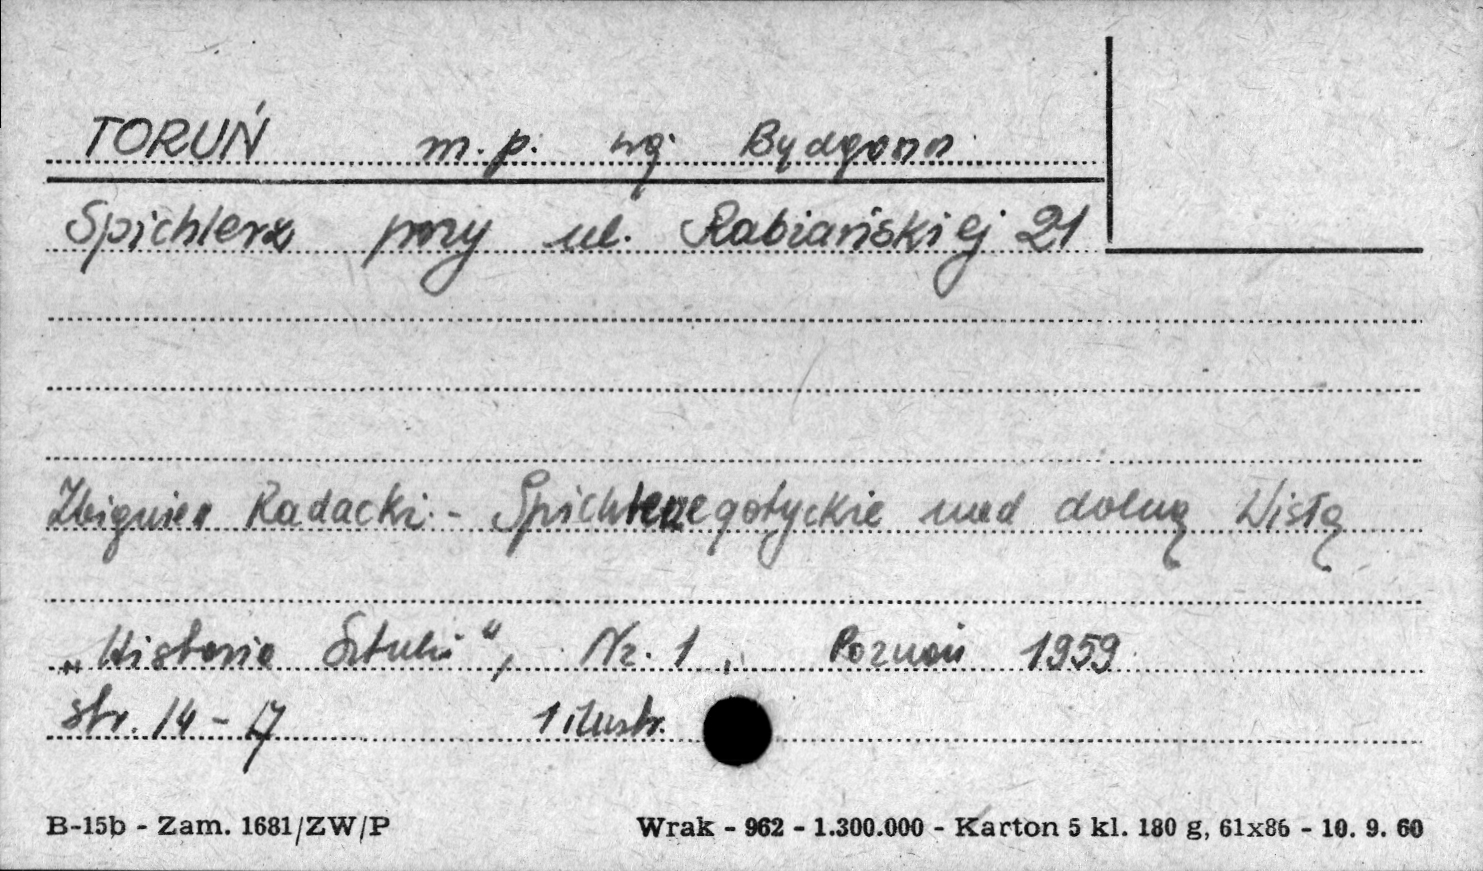 TORUŃ m.p. woj. Bydgoszcz
Spichlerz przy ul. Rabiańskiej 21
Zbigniew Radacki - Spichlerze gotyckie nad dolną Wisłą
„Historia Sztuki", Nr. 1, Poznań 1959
str. 14 - 17 1 ilustr.
B-15b - Zam. 1681/ZW/P Wrak - 962 - 1.300.000 - Karton 5 kl. 180 g, 61x86 - 10. 9. 60